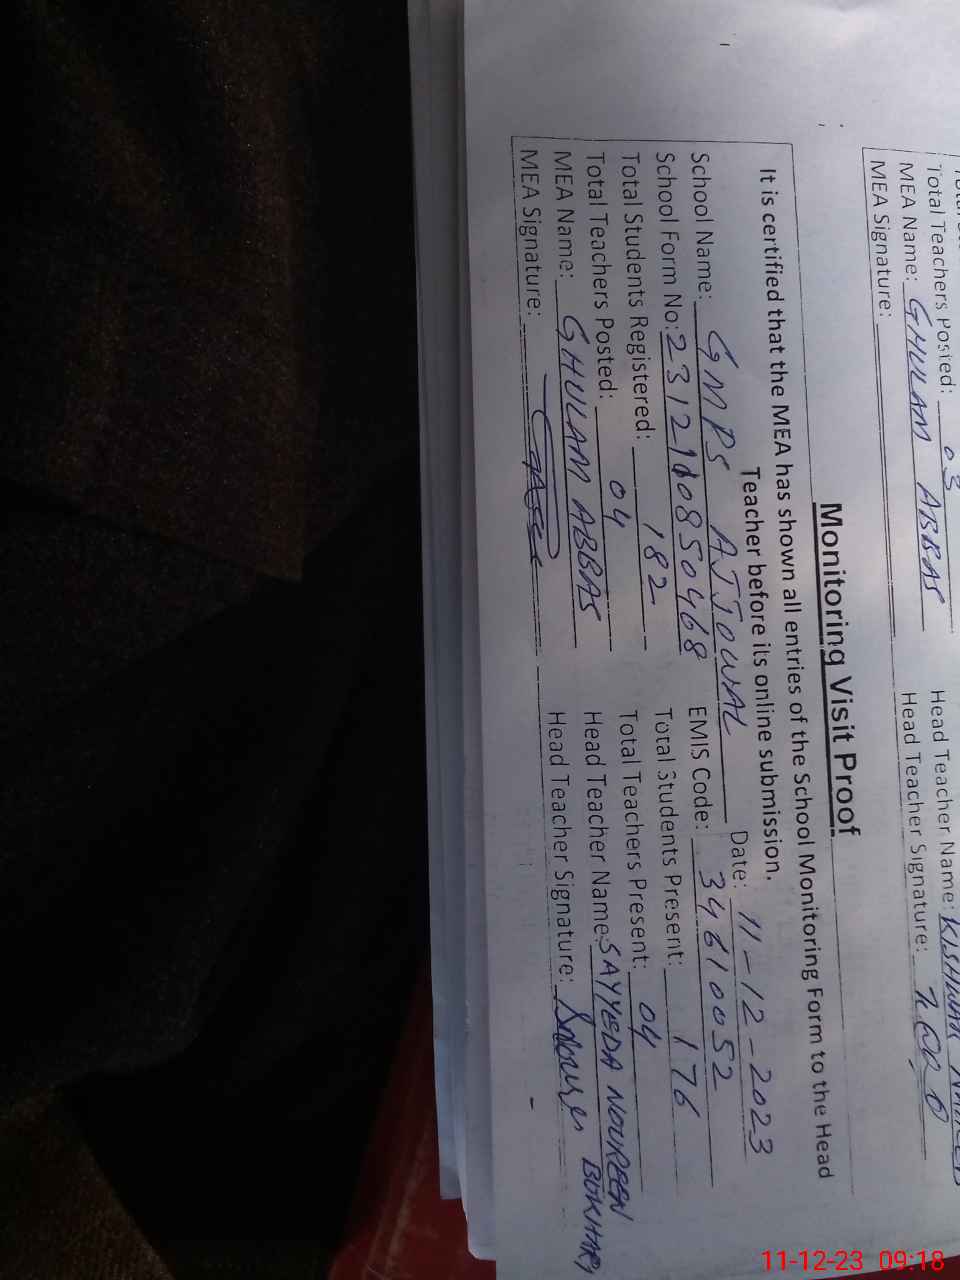 Total Teachers Posted: 03
MEA Name: GHULAM ABBAS Head Teacher Name: KISHWAR
MEA Signature: Head Teacher Signature:
Monitoring Visit Proof
It is certified that the MEA has shown all entries of the School Monitoring Form to the Head
Teacher before its online submission.
Date: 11-12-2023
School Name: GMPS AJJOWAL EMIS Code: 34610052
School Form No: Total Students Present: 176
Total Students Registered: 182 Total Teachers Present: 04
Total Teachers Posted: 04 Head Teacher Name: SAYYEDA NOUREEN BUKHARI
MEA Name: GHULAM ABBAS Head Teacher Signature:
MEA Signature:
11-12-23 09:18